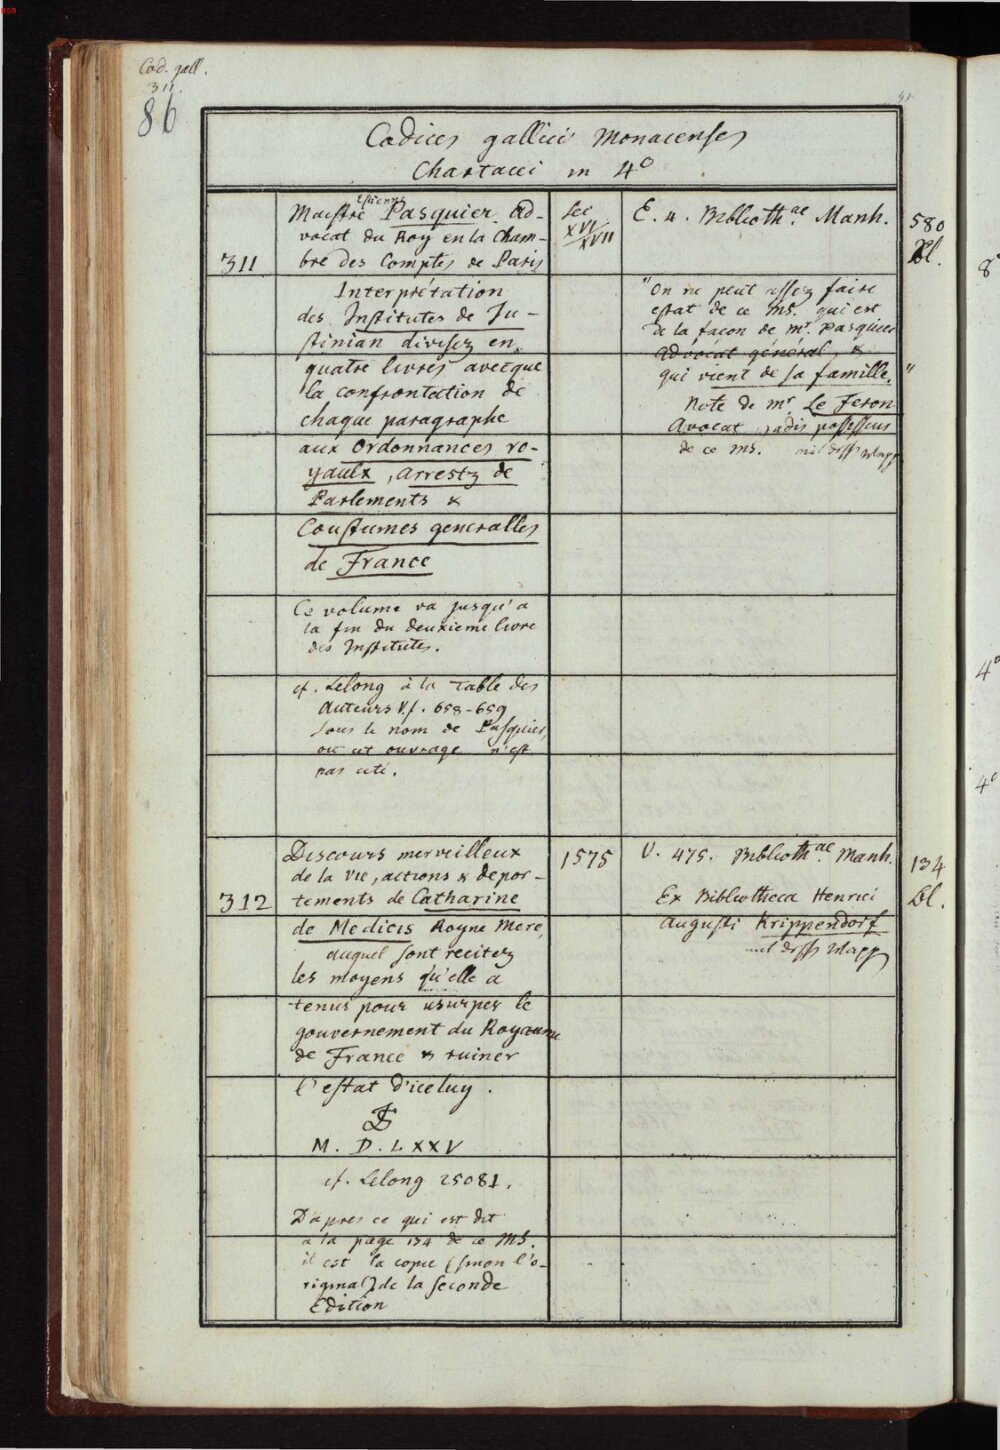 Cod. gall.
311.
86
Codices gallici Monacenses
Chartacei in 4º
311
Maistre Estienne Pasquier Ad-
vocat du Roy en la Cham-
bre des Comptes de Paris
Interprétation
des Institutes de Ju-
stinian divisez en
quatre livres avecque
la confrontation de
chaque paragraphe
aux Ordonnances ro-
yaulx, arrestz de
Parlements &
Coustumes generalles
de France
Ce volume va jusqu'a
la fin du deuxieme livre
des Institutes.
cf. Lelong à la Table des
Auteurs V. f. 658-659
sous le nom de Pasquier,
où cet ouvrage n'est
pas cité.
Sec
XVI/XVII
E. 4. Biblioth.ae Manh.
"On ne peut assez faire
estat de ce ms. qui est
de la façon de mr. Pasquier
Advocat général, &
qui vient de sa famille."
Note de mr Le Feron
Avocat, jadis possesseur
de ce ms.
580
Bl.
312
Discours merveilleux
de la vie, actions & depor-
tements de Catharine
de Medicis Royne Mere,
auquel sont recitez
les moyens qu'elle a
tenus pour usurper le
gouvernement du Royaume
de France & ruiner
l'estat d'iceluy.
M. D. LXXV
cf. Lelong 25081.
D'apres ce qui est dit
a la page 134 de ce MS.
il est la copie (sinon l'o-
riginal) de la seconde
Edition
1575
V. 475. Biblioth.ae Manh.
Ex Bibliotheca Henrici
Augusti Krippendorf
134
Bl.
8º
4º
4º